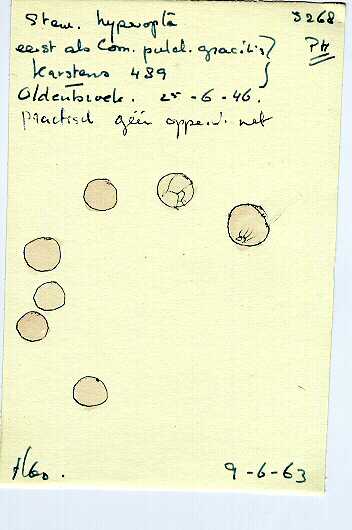 Stem. hyperopta S268
eerst als Com. pulch. gracilis } PH
Karstens 489
Oldenbroek. 25-6-46.
Practisch géén append. net
H60.
9-6-63